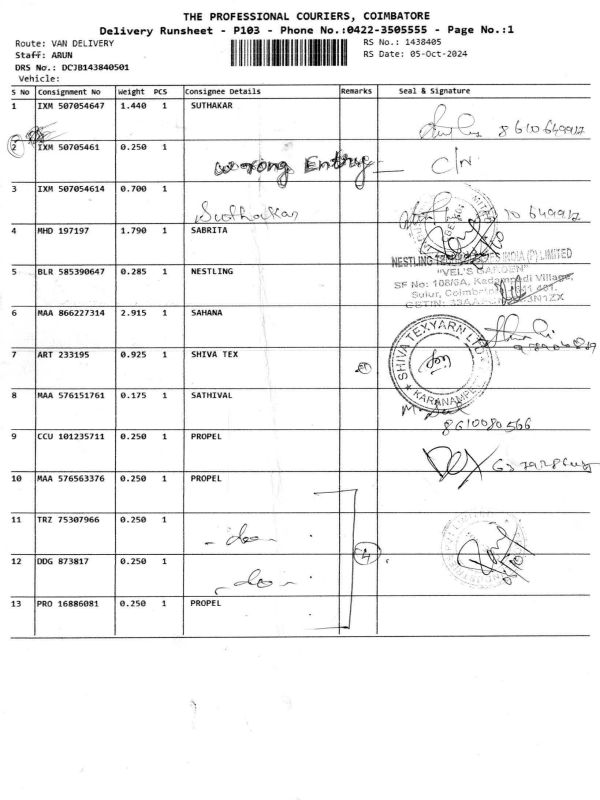 THE PROFESSIONAL COURIERS, COIMBATORE
Delivery Runsheet - P103 - Phone No.:0422-3505555 - Page No.:1
Route: VAN DELIVERY RS No.: 1438405
Staff: ARUN RS Date: 05-Oct-2024
DRS No.: DCJB143840501
Vehicle:
S No Consignment No Weight PCS Consignee Details Remarks Seal & Signature
1 IXM 507054647 1.440 1 SUTHAKAR
8610649912
2 IXM 50705461 0.250 1 Wrong Entry C/N
3 IXM 507054614 0.700 1 Sudhakar 10 649912
4 MHD 197197 1.790 1 SABRITA
NESTLING INDIA (P) LIMITED
"VEL'S GARDEN"
5 BLR 585390647 0.285 1 NESTLING
SF No: 108/6A, Kadampadi Village,
Sulur, Coimbatore 641 401.
6 MAA 866227314 2.915 1 SAHANA
7 ART 233195 0.925 1 SHIVA TEX
SHIVA TEXYARN LTD
KARANAMPE
8 MAA 576151761 0.175 1 SATHIVAL
8610080566
9 CCU 101235711 0.250 1 PROPEL
10 MAA 576563376 0.250 1 PROPEL
11 TRZ 75307966 0.250 1 - do -
12 DDG 873817 0.250 1 - do - 4
13 PRO 16886081 0.250 1 PROPEL